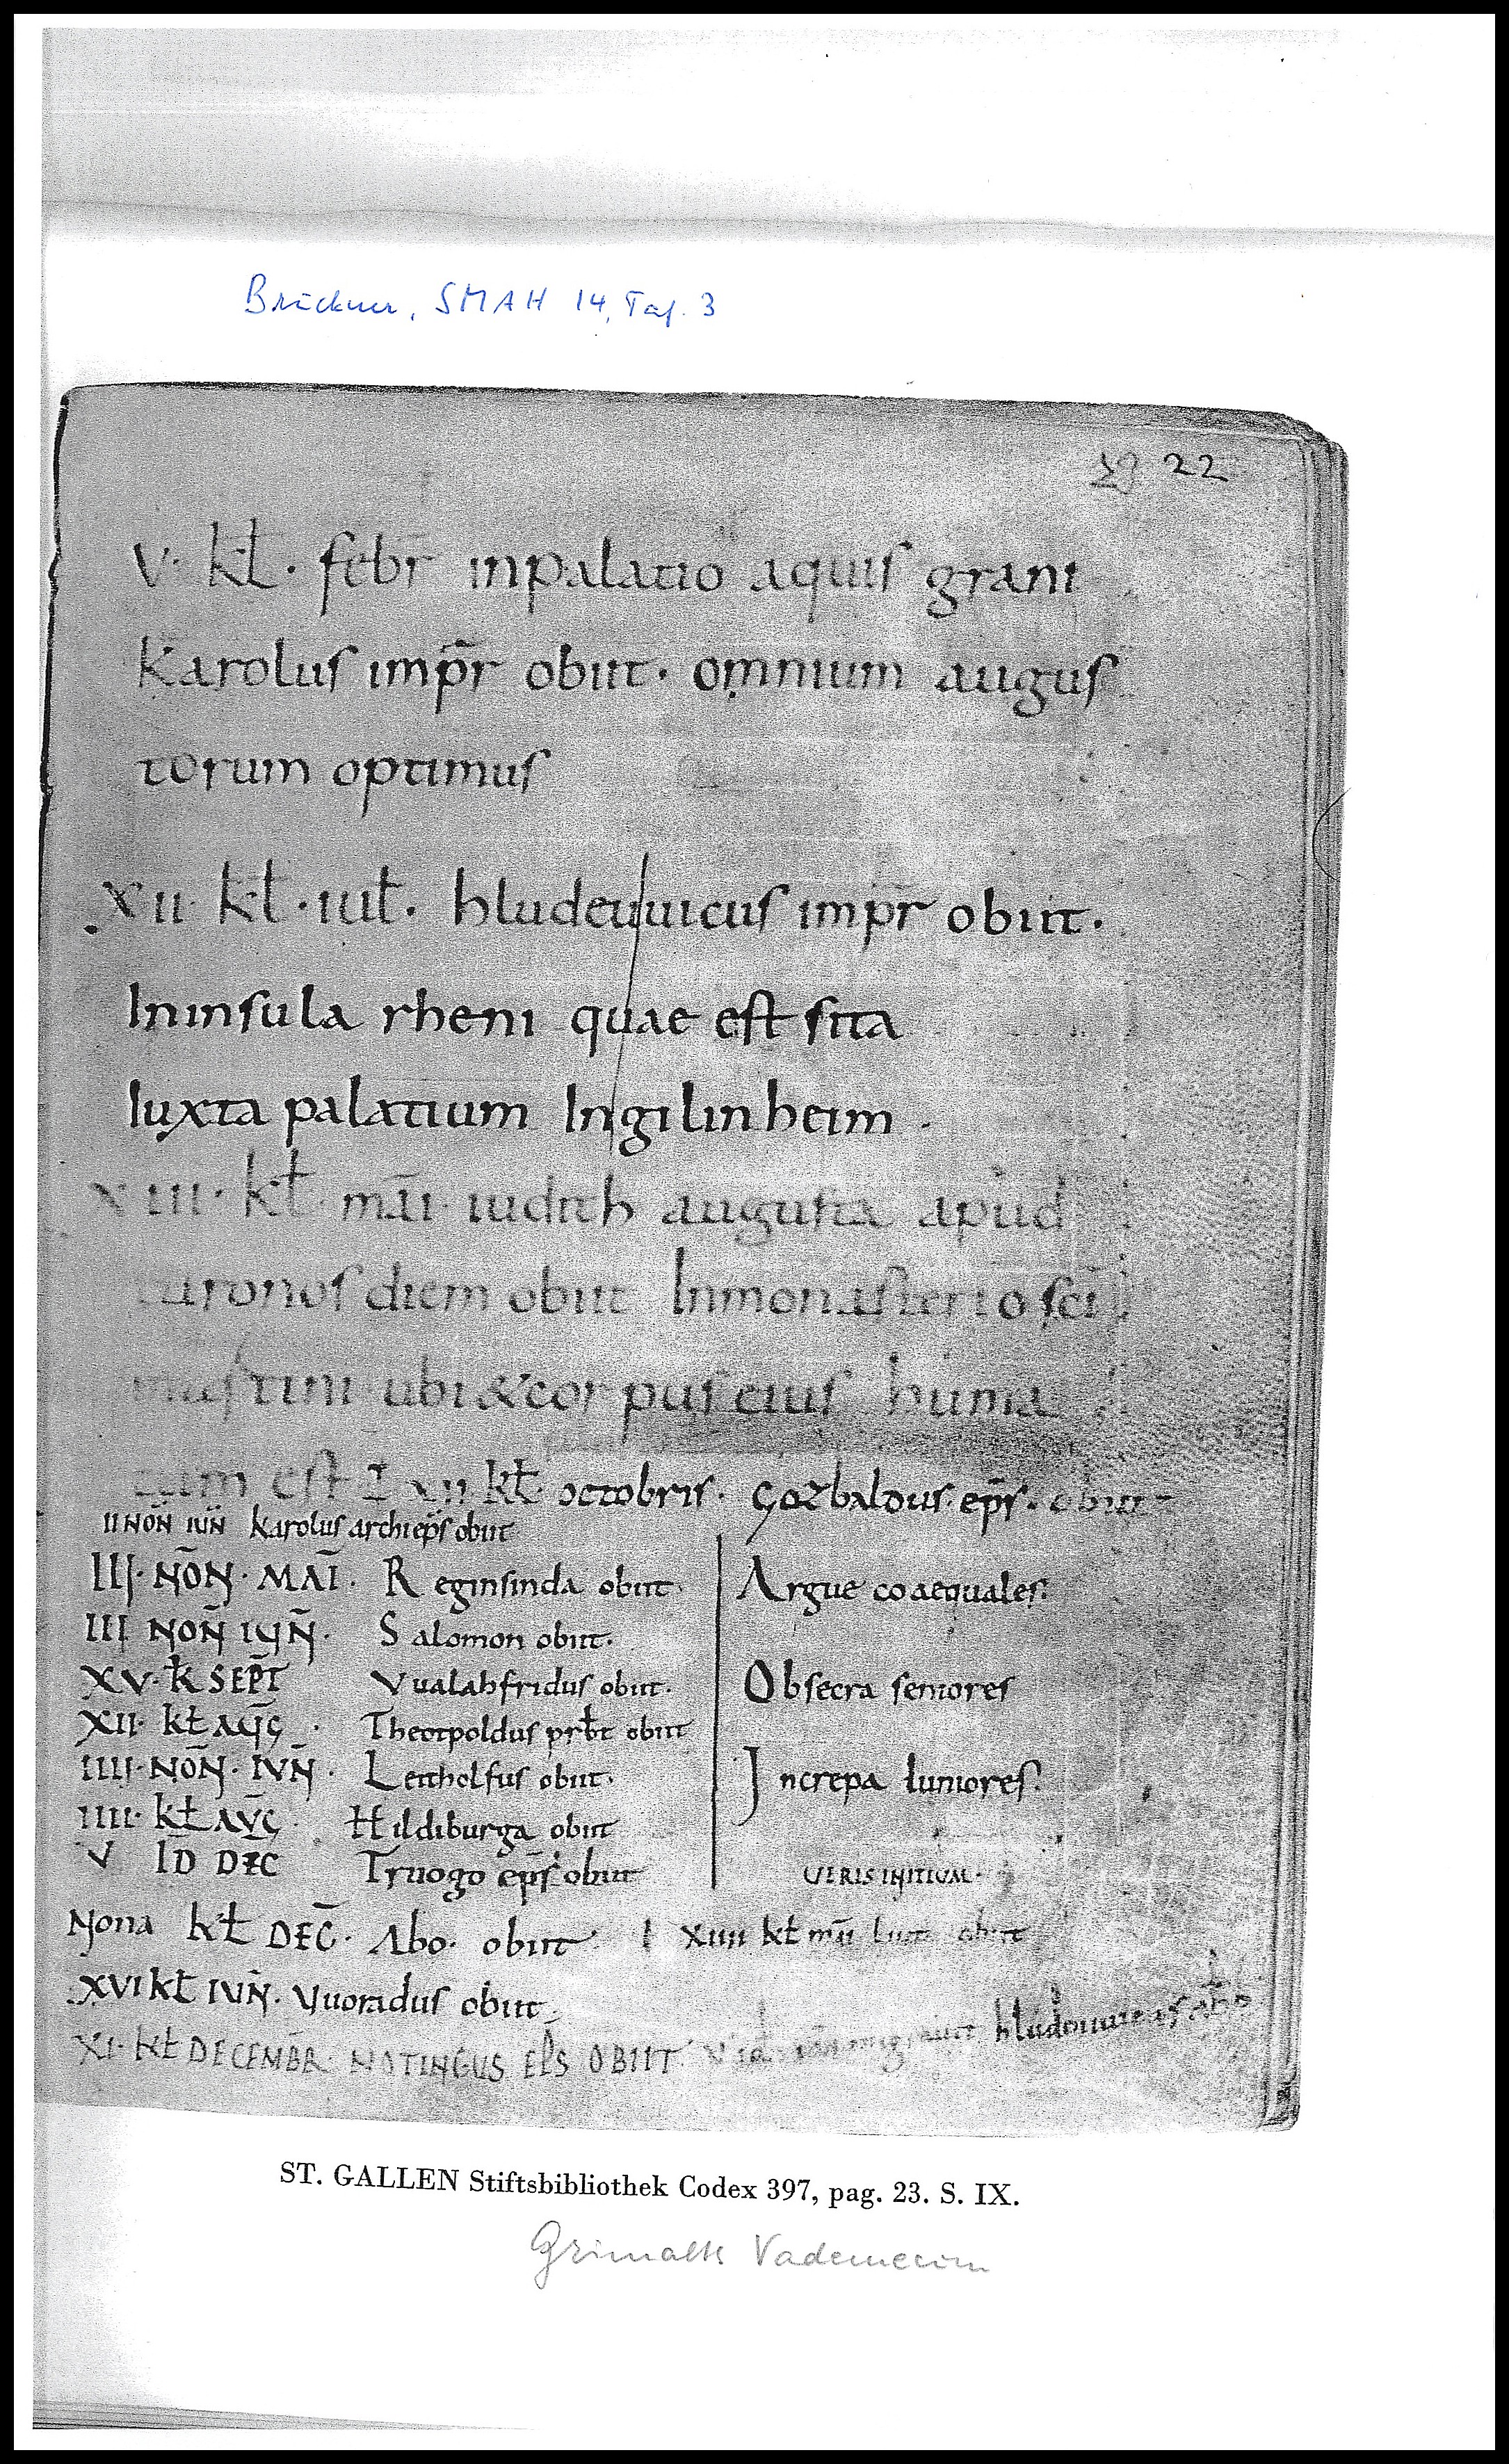 Bruckner, SMAH 14, Taf. 3
22
V · kł · febr̄ inpalatio aquis grani
karolus imp̄r obiit · omnium augus
torum optimus
XII · kł · iuł · hludeuuicus imp̄r obiit ·
Ininsula rheni quae est sita
Iuxta palatium Ingilinheim ·
XIII · kł · māi · iudith augusta apud
turonos diem obiit Inmonasterio sc̄i
martini ubi &corpus eius huma
tum est I XII kł · octobris · Gozbaldus · ep̄s · obiit
II NON̄ IUN̄ karolus archiep̄s obiit
III · NŌN · MAĪ · Reginsinda obiit ·
Argue coaequales :
III NON̄ IUN̄ · Salomon obiit ·
XV · k̄ SEPT̄ Vualahfridus obiit ·
Obsecra seniores
XII · kł AUḠ · Theotpoldus prb̄t obiit
IIII · NŌN · IVN̄ · Leitholfus obiit ·
Increpa Iuniores :
IIII · kł AVḠ · Hildiburga obiit
V ID̄ DEC Truogo ep̄s obiit
VERIS INITIUM ·
Nona kł DEC̄ · Abo · obiit I XIIII kł obiit
XVI kł IVN̄ · Vuoradus obiit ·
XI · kł DECEMBR · NOTINGUS EP̄S OBIIT · hludouuicus
ST. GALLEN Stiftsbibliothek Codex 397, pag. 23. S. IX.
Grimalts Vademecum